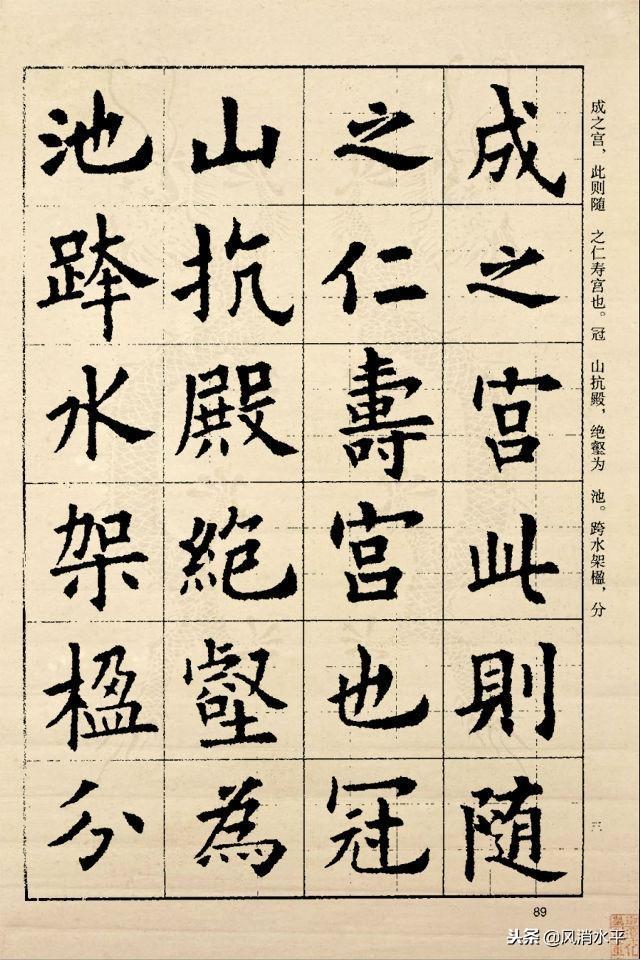 成之宫此則随
之仁壽宫也冠
山抗殿絶壑為
池跨水架楹分
成之宫，此则随 之仁寿宫也。冠 山抗殿，绝壑为 池。跨水架楹，分
89
头条 @风消水平